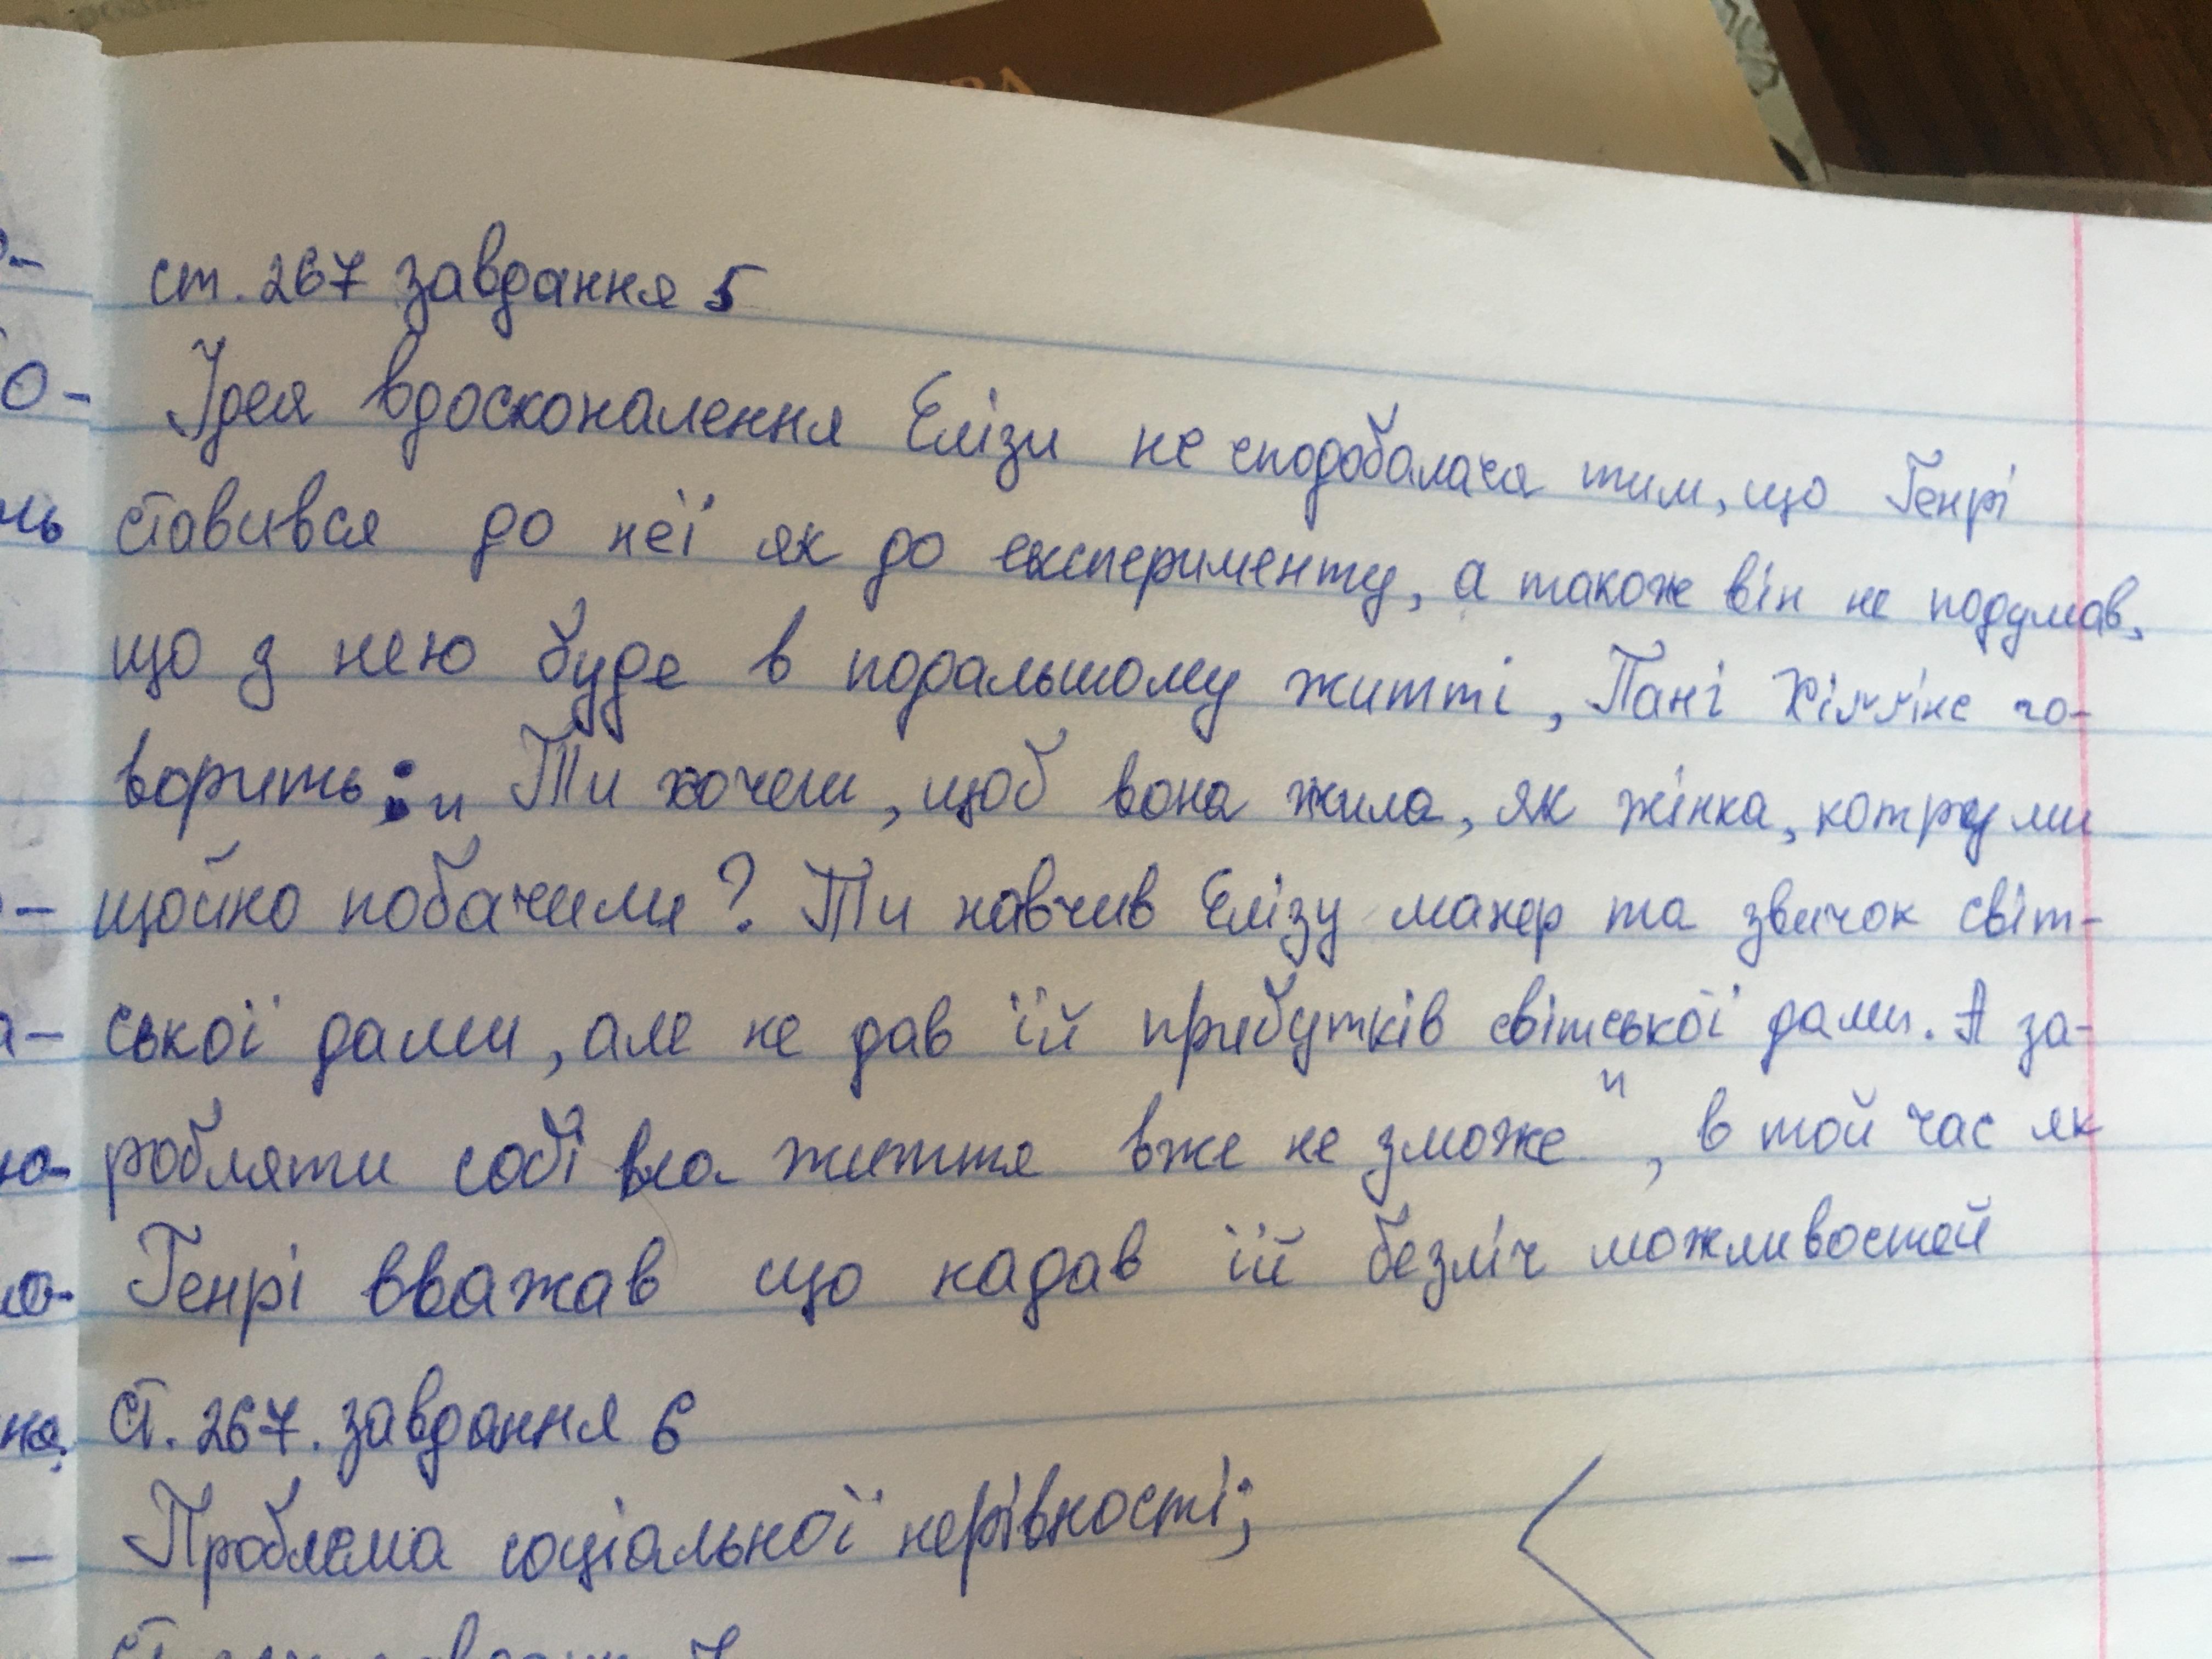 ст. 267 завдання 5
Ідея вдосконалення Елізи не сподобалася тим, що Генрі
ставився до неї як до експерименту, а також він не подумав,
що з нею буде в подальшому житті, Пані Хіггінс го-
ворить: „Ти хочеш, щоб вона жила, як жінка, котру ми
щойно побачили? Ти навчив Елізу манер та звичок світ-
ської дами, але не дав їй прибутків світської дами. А за-
робляти собі на життя вже не зможе", в той час як
Генрі вважав що надав їй безліч можливостей
ст. 267. завдання 6
Проблема соціальної нерівності;